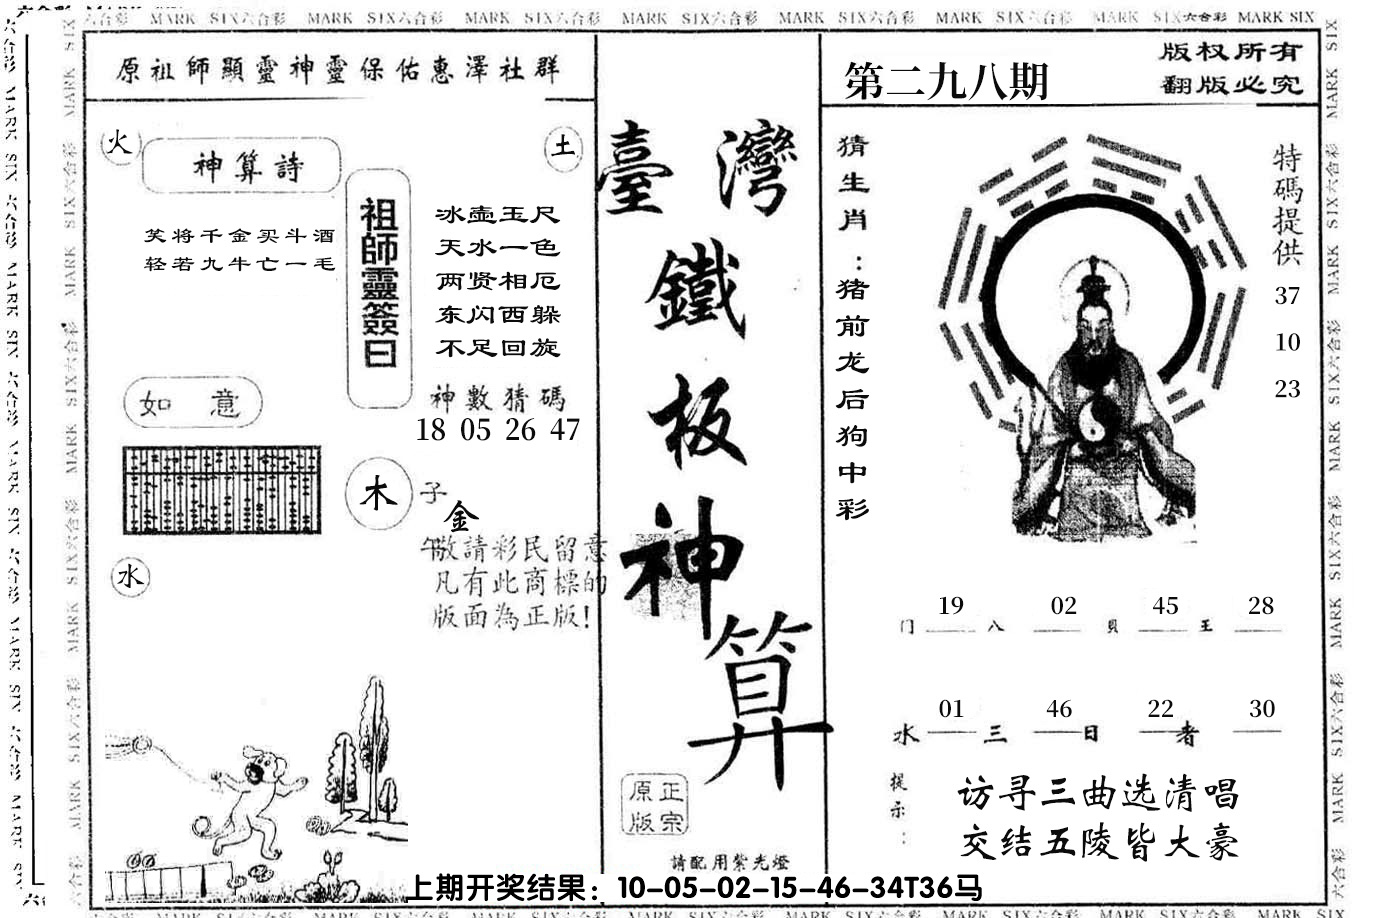 MARK SIX六合彩 MARK SIX六合彩 MARK SIX六合彩 MARK SIX六合彩 MARK SIX六合彩 MARK SIX六合彩 MARK SIX六合彩 MARK SIX
原祖師顯靈神靈保佑惠澤社群
火
土
神算詩
笑将千金买斗酒
轻若九牛亡一毛
祖師靈簽曰
冰壶玉尺
天水一色
两贤相厄
东闪西躲
不足回旋
神數猜碼
18 05 26 47
如意
木
子
金
午
水
敬請彩民留意
凡有此商標的
版面為正版!
臺灣
鐵
板
神
算
原正
版宗
請配用紫光燈
第二九八期
版权所有
翻版必究
猜生肖:猪前龙后狗中彩
特碼提供
37
10
23
19 02 45 28
门 八 貝 王
01 46 22 30
水 三 日 者
提示:
访寻三曲选清唱
交结五陵皆大豪
上期开奖结果：10-05-02-15-46-34T36马